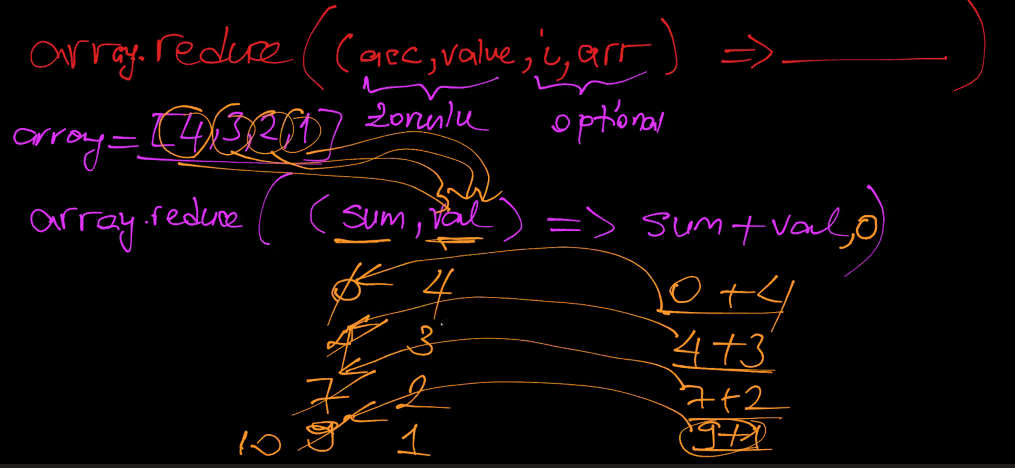 array.reduce((acc,value,i,arr) => ______)
zorunlu optional
array=[4,3,2,1]
array.reduce((sum,val) => sum+val,0)
0 4 0+4
4 3 4+3
7 2 7+2
10 9 1 9+1